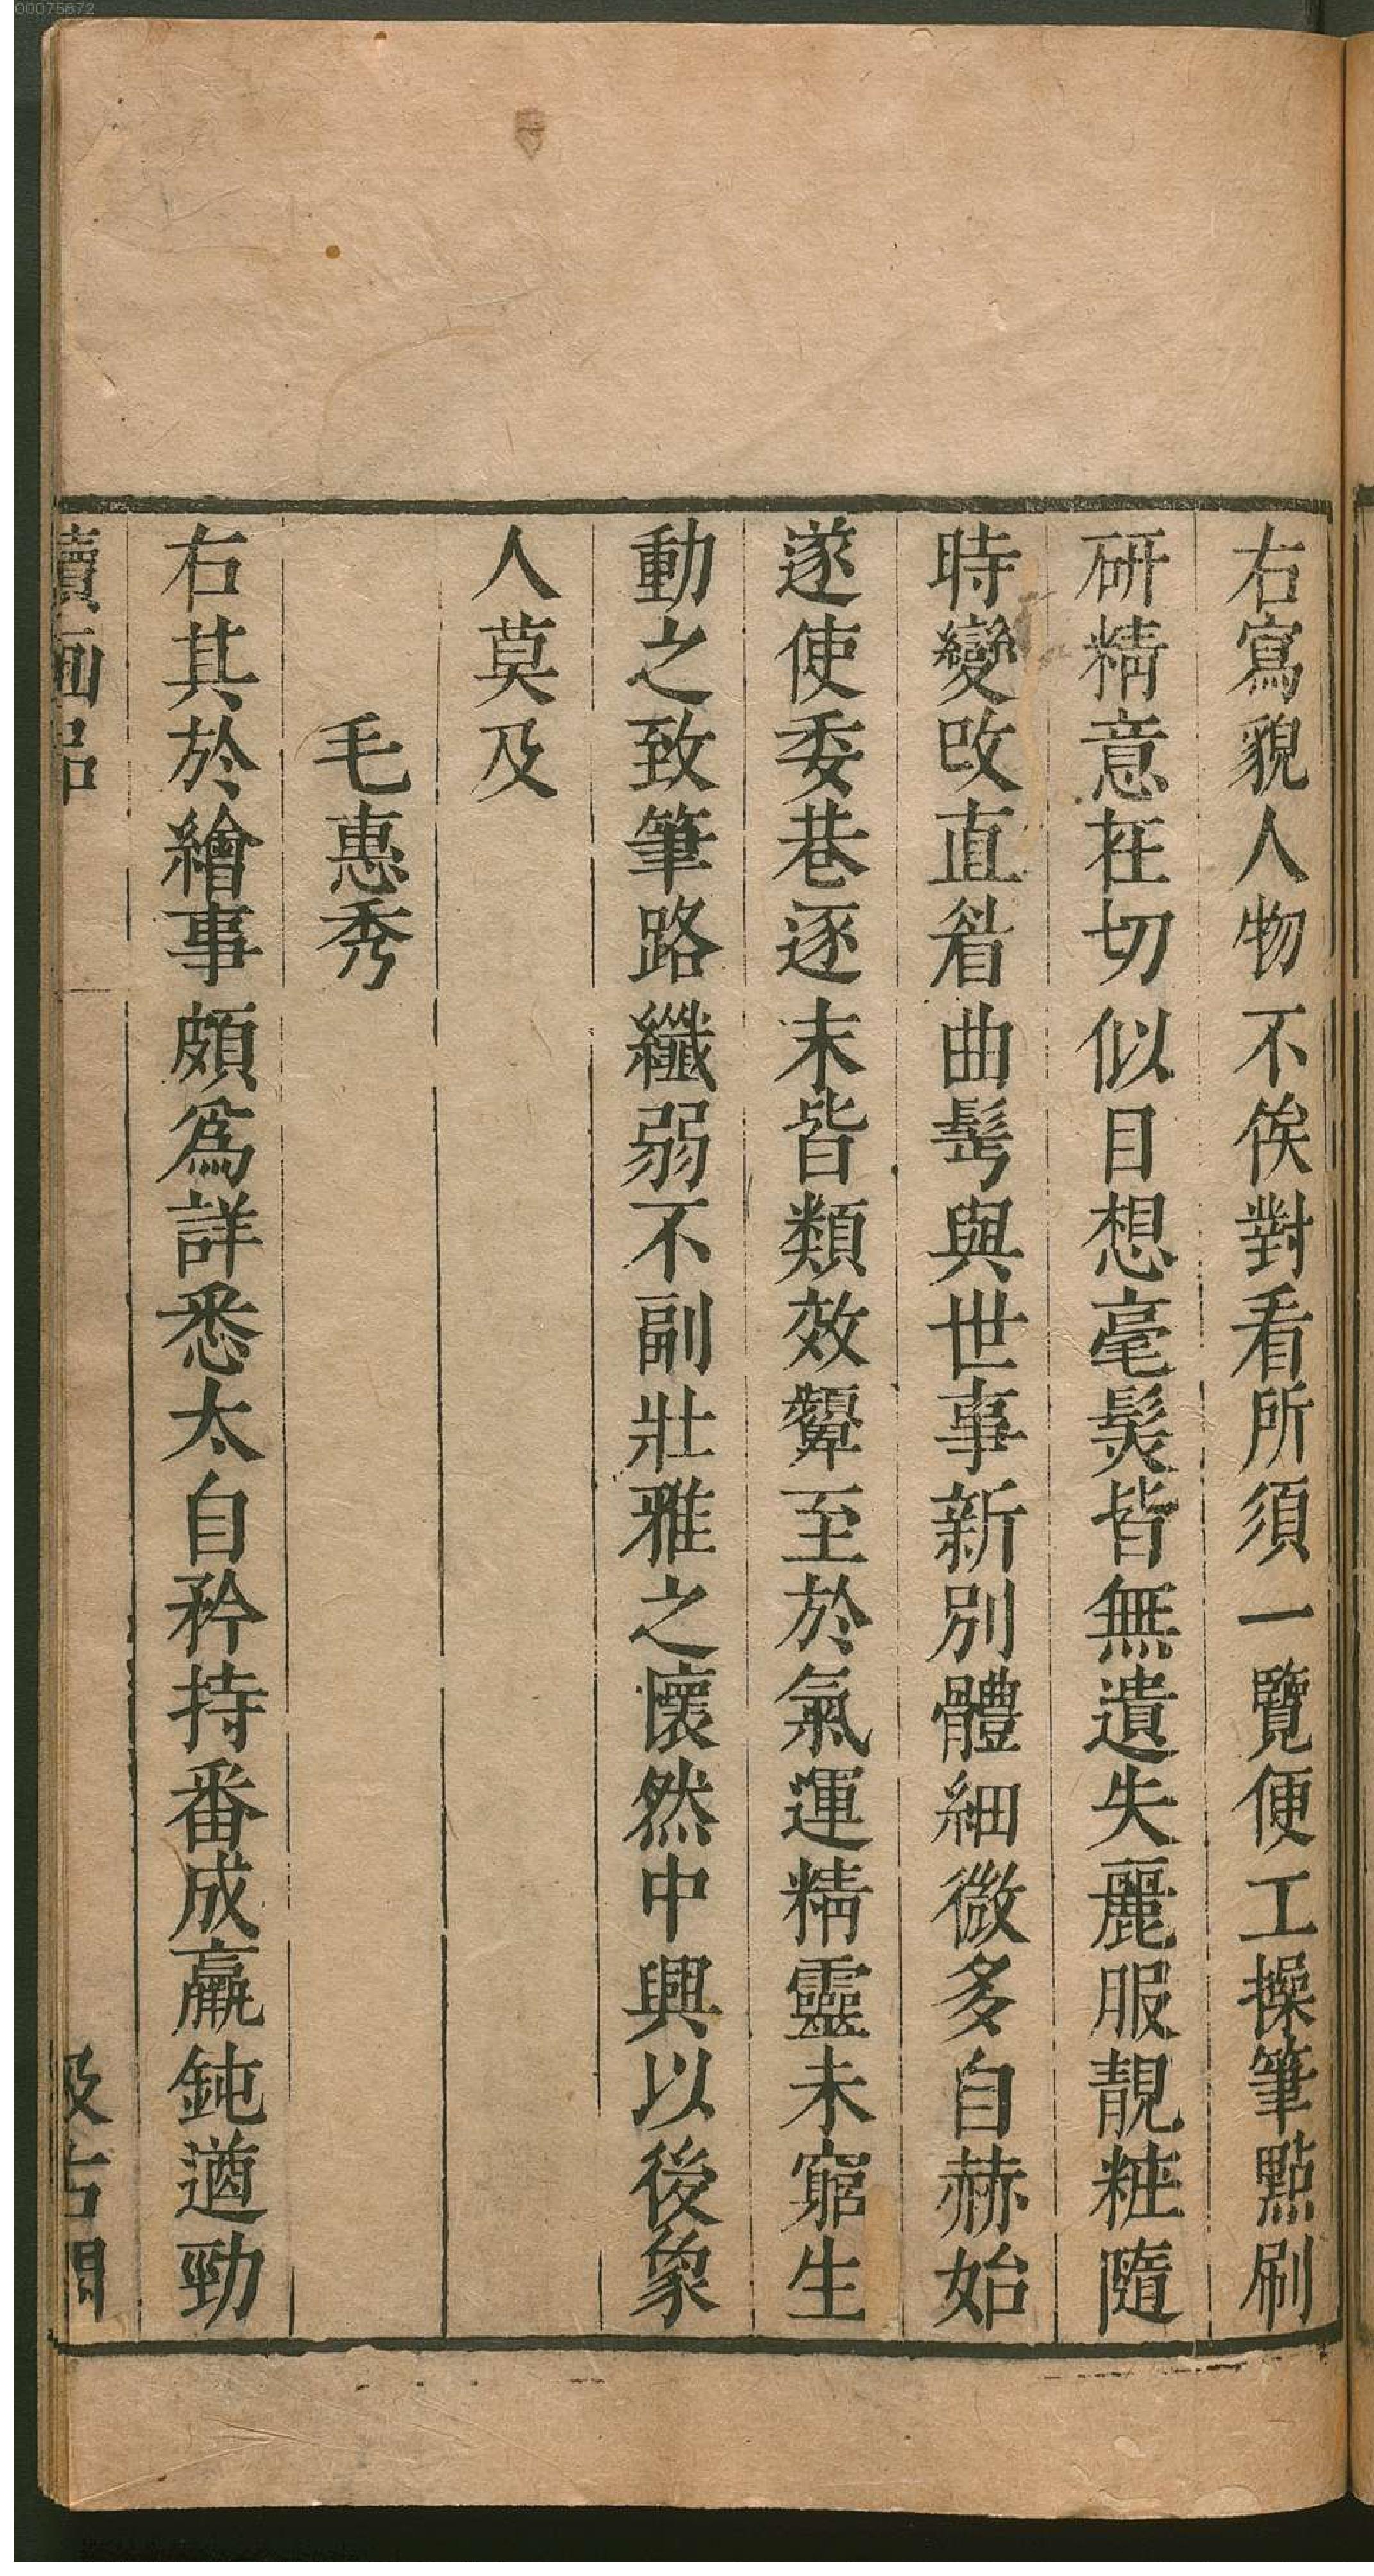 00075872
右寫貌人物不俟對看所須一覽便工操筆點刷
研精意在切似目想毫髮皆無遺失麗服靚粧隨
時變改直眉曲髩與世事新別體細微多自赫始
遂使委巷逐末皆類效顰至於氣運精靈未窮生
動之致筆路纖弱不副壯雅之懷然中興以後象
人莫及
毛惠秀
右其於繪事頗爲詳悉太自矜持番成羸鈍遒勁
續画品
汲古閣